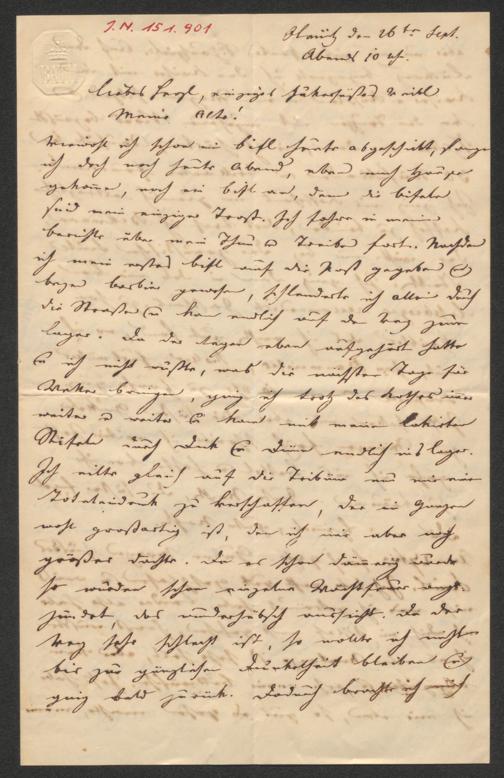 I.N. 151.901
Olmütz den 26ten Sept.
Abends 10 Uhr.
liebes Hersl, einziges Weibl
Meine Alte!
ich schon ein bißl heute abgeschickt, fange
ich doch noch heute Abend, eben nach Hause
gekommen, noch ein bißl an, denn die bißln
sind mein einziger Trost. Ich fahre in meinem
Berichte über mein Thun u Treiben fort. Nachdem
ich mein erstes bißl auf die Post gegeben u
beym Barbier gewesen, schlenderte ich allein durch
die Straßen u kam endlich auf den Weg zum
Lager. Da der Regen eben aufgehört hatte
u ich nicht wußte, was die nächsten Tage für
Wetter bringen, ging ich trotz des Kothes immer
weiter u weiter u kam mit meinen lakirten
Stifeln durch Dick u Dünn endlich ins Lager.
Ich eilte gleich auf die Tribüne um mir einen
Totaleindruk zu verschaffen, der im Ganzen
wohl großartig ist, den ich mir aber noch
größer dachte. Da es schon dämmrig wurde
so wurden schon einzelne Wachtfeuer ange-
zündet, das wunderhübsch aussieht. Da der
Weg sehr schlecht ist, so wollte ich nicht
bis zur gänzlichen Dunkelheit bleiben u
ging bald zurück. Dadurch brachte ich mich